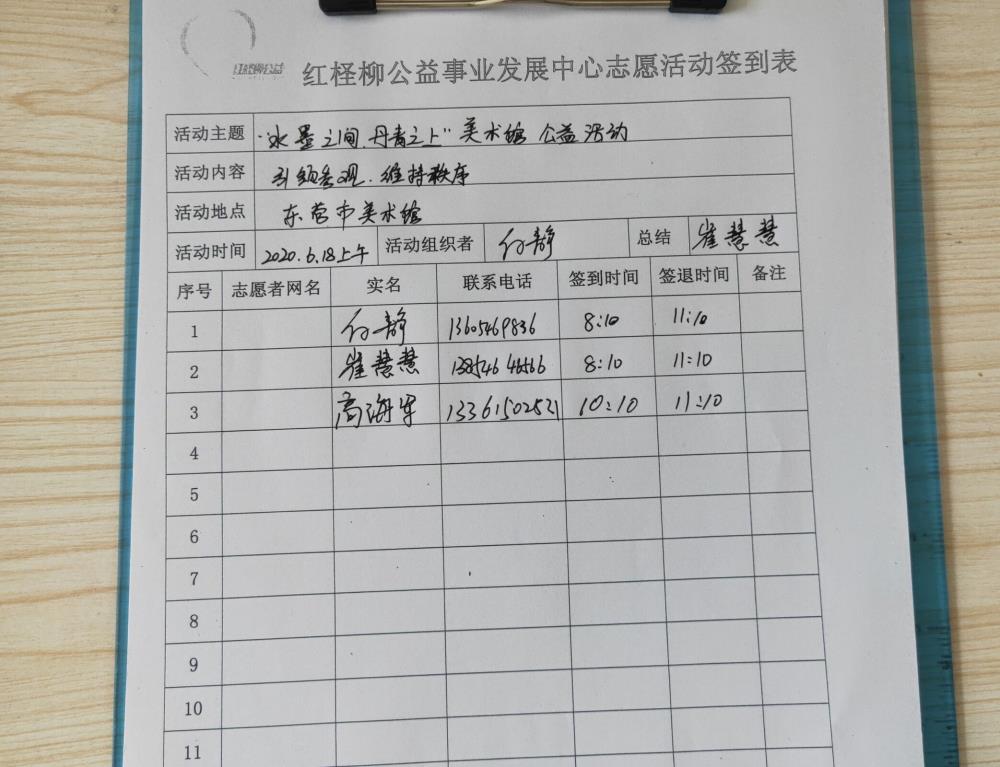 红柽柳公益
红柽柳公益事业发展中心志愿活动签到表
活动主题 "水墨之间.丹青之上"美术馆公益活动
活动内容 引领参观.维持秩序
活动地点 东营市美术馆
活动时间 2020.6.18上午 活动组织者 付静 总结 崔慧慧
序号 志愿者网名 实名 联系电话 签到时间 签退时间 备注
1 付静 13605469836 8:10 11:10
2 崔慧慧 8:10 11:10
3 高海军 13361502521 10:10 11:10
4
5
6
7
8
9
10
11